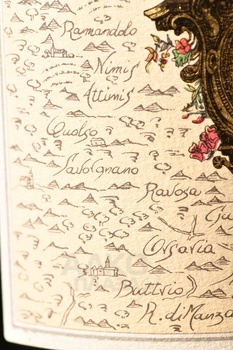 Ramandolo
Nimis
Attimis
Qualso
Savorgnano
Ravosa
Orsaria
Buttrio
R. di Manza